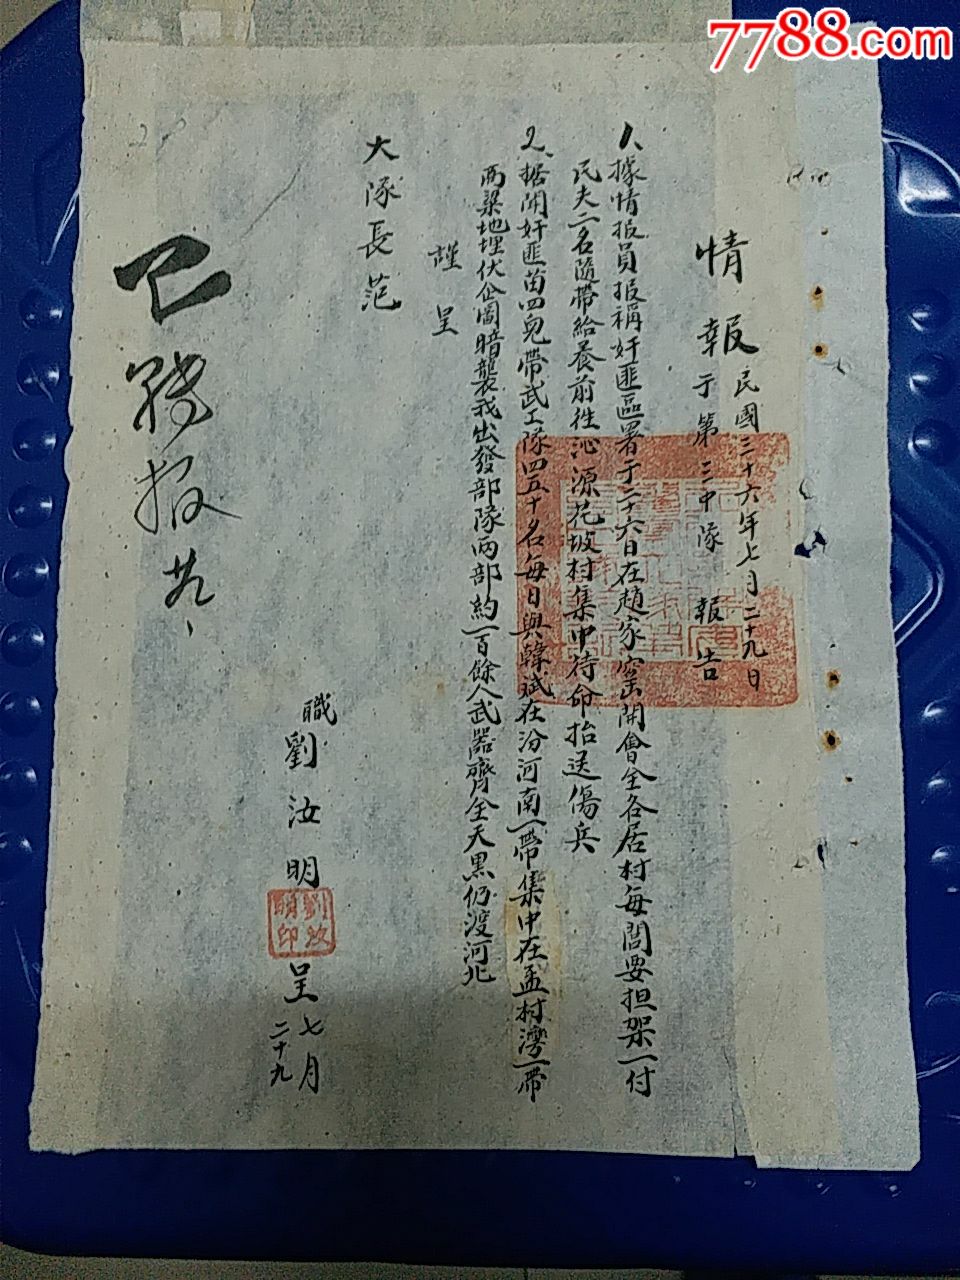 7788.com
情報 民國三十六年七月二十九日
于第三中隊報告
1、據情报員报稱奸匪區署于二十六日在趙家窑開會全各居村每閭要担架一付
民夫二名隨帶給养前往沁源花坡村集中待命抬送傷兵
2、据闻奸匪苗四兒帶武工隊四五十名每日與韓斌在汾河南一帶集中在孟村湾一帶
两梁地埋伏企圖暗襲我出發部隊两部約一百餘人武器齊全天黑仍渡河北
謹呈
大隊長范
職劉汝明呈 七月二十九
劉汝明印
已轉报